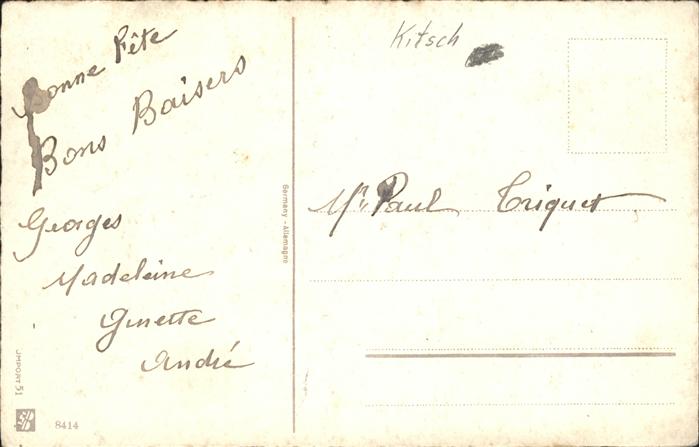 Bonne Fête
Bons Baisers
Georges
Madeleine
Ginette
André
JMPORT 51
8414
Germany - Allemagne
Kitsch
Mr Paul Triquet